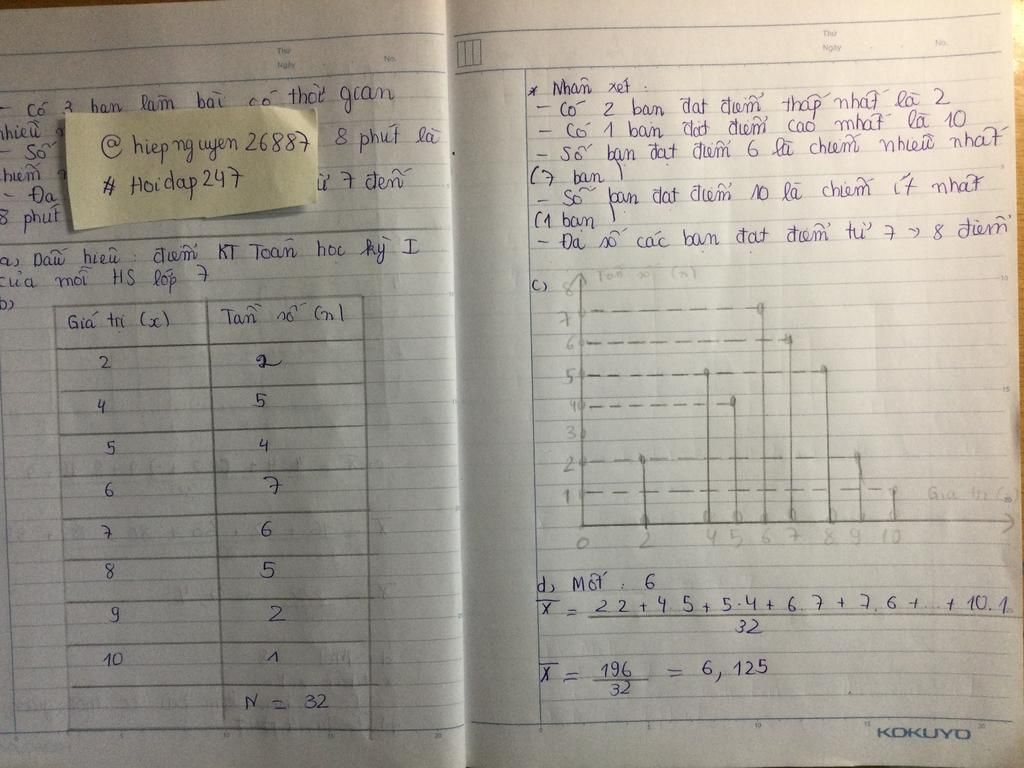 Thứ
Ngày
No.
- Có 3 bạn làm bài có thời gian
nhiều
- Số 8 phút là
chiếm
- Đa từ 7 đến
8 phút
@hiepnguyen26887
# Hoidap247
a, Dấu hiệu : điểm KT Toán học kỳ I
của mỗi HS lớp 7
b)
Giá trị (x) Tần số (n)
2 2
4 5
5 4
6 7
7 6
8 5
9 2
10 1
N = 32
Thứ
Ngày
No.
* Nhận xét :
- Có 2 bạn đạt điểm thấp nhất là 2
- Có 1 bạn đạt điểm cao nhất là 10
- Số bạn đạt điểm 6 là chiếm nhiều nhất
(7 bạn)
- Số bạn đạt điểm 10 là chiếm ít nhất
(1 bạn)
- Đa số các bạn đạt điểm từ 7 → 8 điểm
c)
Tần số (n)
8
7
6
5
4
3
2
1
Giá trị (x)
0 2 4 5 6 7 8 9 10
d, Mốt : 6
X = 2.2 + 4.5 + 5.4 + 6.7 + 7.6 + ... + 10.1
32
X = 196 = 6,125
32
KOKUYO